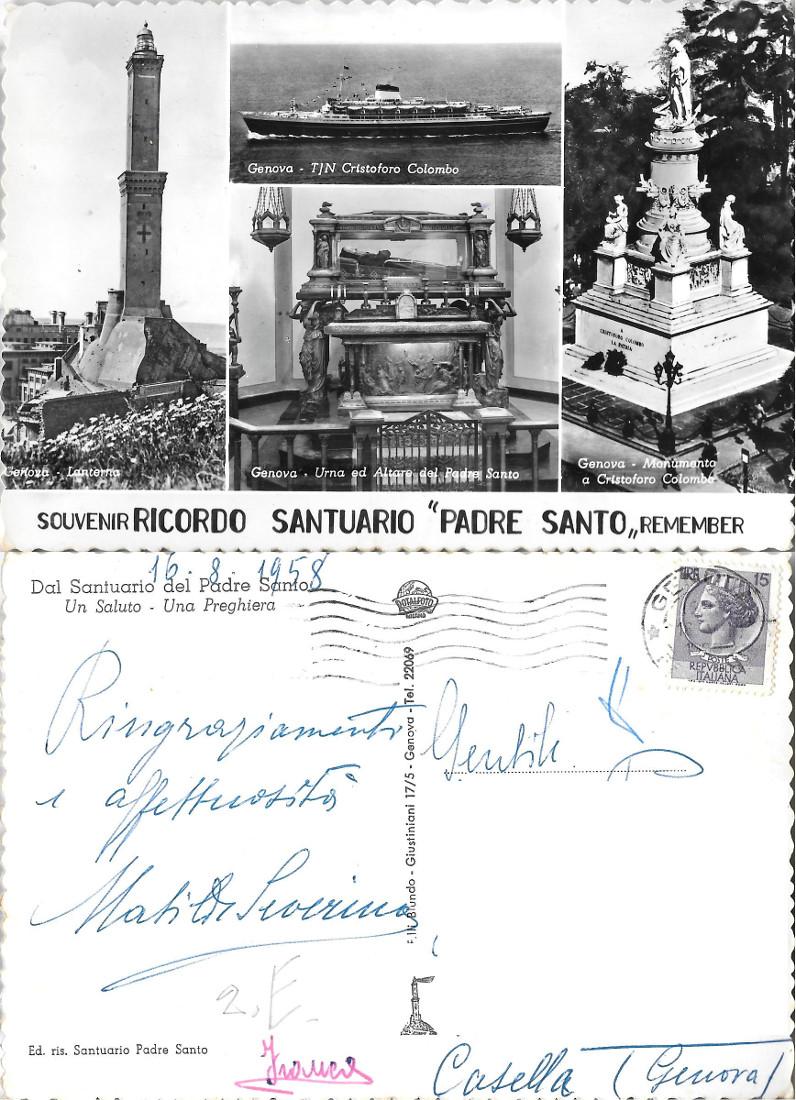 Genova - Lanterna
Genova - T/N Cristoforo Colombo
Genova - Urna ed Altare del Padre Santo
A
CRISTOFORO COLOMBO
LA PATRIA
Genova - Monumento
a Cristoforo Colombo
SOUVENIR RICORDO SANTUARIO "PADRE SANTO„ REMEMBER
16-8-1958
Dal Santuario del Padre Santo
Un Saluto - Una Preghiera
Ringraziamenti
e affettuosità
Matilde Severino
2. E.
Franca
Ed. ris. Santuario Padre Santo
F.lli Biundo - Giustiniani 17/5 - Genova - Tel. 22069
ROTALFOTO
MILANO
GE
LIRE 15
POSTE
REPVBBLICA
ITALIANA
Gentile
Casella (Genova)